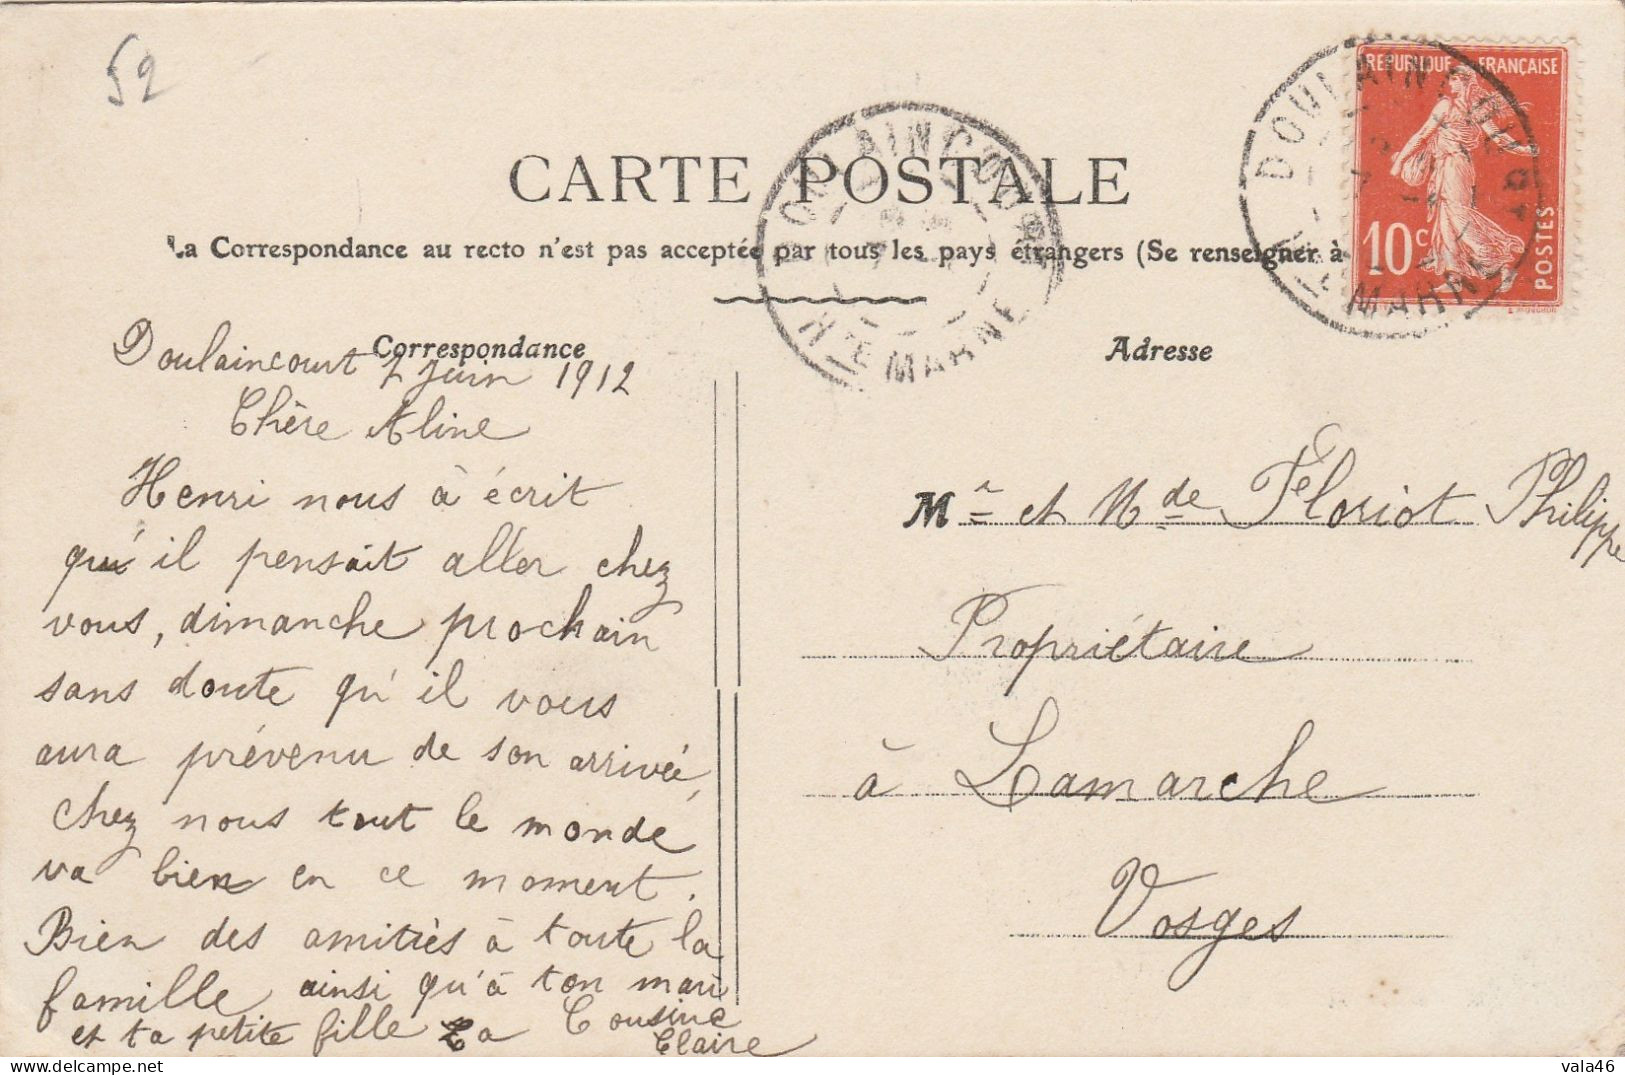 52
CARTE POSTALE
La Correspondance au recto n'est pas acceptée par tous les pays étrangers (Se renseigner à
RÉPUBLIQUE FRANÇAISE
10 c
POSTES
DOULAINCOURT
HTE MARNE
DOULAINCOURT
HTE MARNE
Correspondance
Doulaincourt 7 Juin 1912
Chère Aline
Henri nous à écrit
qu'il pensait aller chez
vous, dimanche prochain
sans doute qu'il vous
aura prévenu de son arrivée,
chez nous tout le monde
va bien en ce moment.
Bien des amitiès à toute la
famille ainsi qu'à ton mari
et ta petite fille La Cousine
Claire
Adresse
Mr et Mde Floriot Philippe
Propriétaire
à Lamarche
Vosges
delcampe.net
vala46